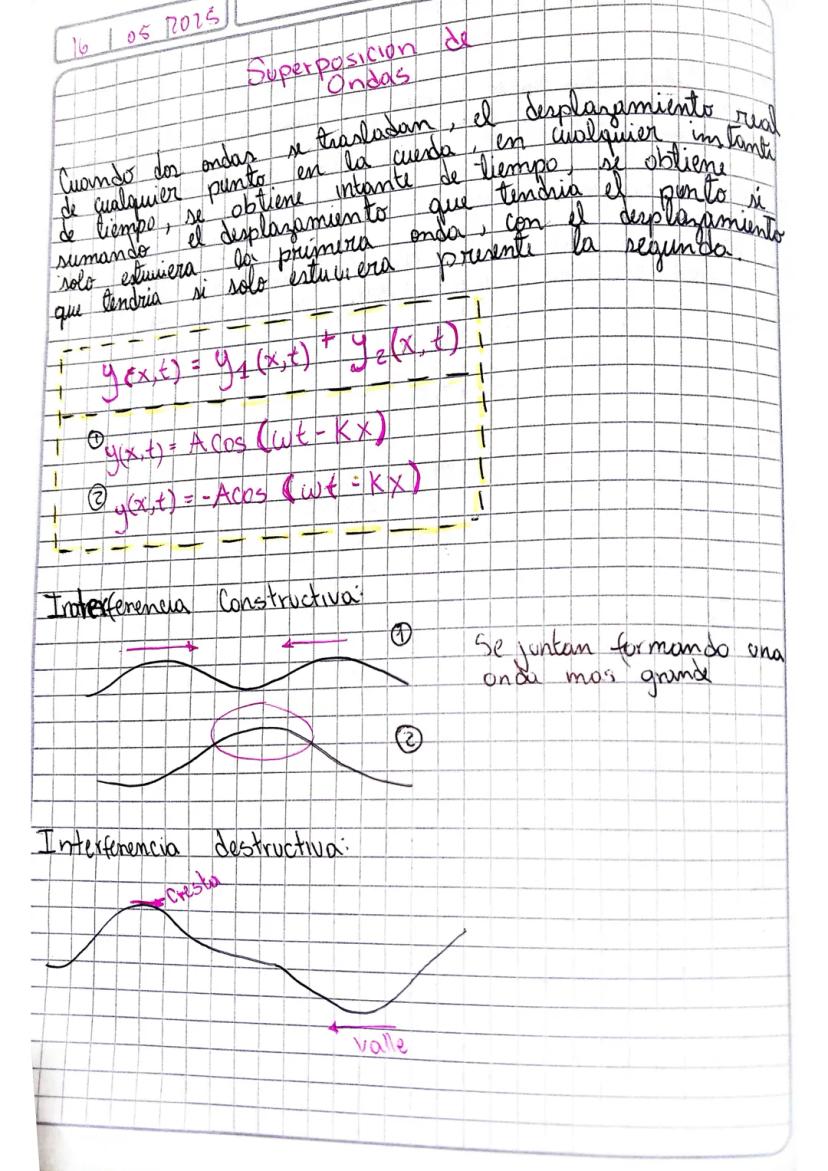 16 / 05 2025
Superposicion de
Ondas
Cuando dos ondas se trasladan, el desplazamiento real
de cualquier punto en la cuerda, en cualquier instante
de tiempo, se obtiene intante de tiempo, se obtiene
sumando el desplazamiento que tendria el punto si
solo estuviera la primera onda, con el desplazamiento
que tendria si solo estuviera presente la segunda.
y(x,t) = y1 (x,t) + y2 (x,t)
① y(x,t) = A cos (wt - Kx)
② y(x,t) = -Acos (wt - Kx)
Interferencia Constructiva:
①
Se juntan formando una
onda mas grande
②
Interferencia destructiva:
Cresta
Valle